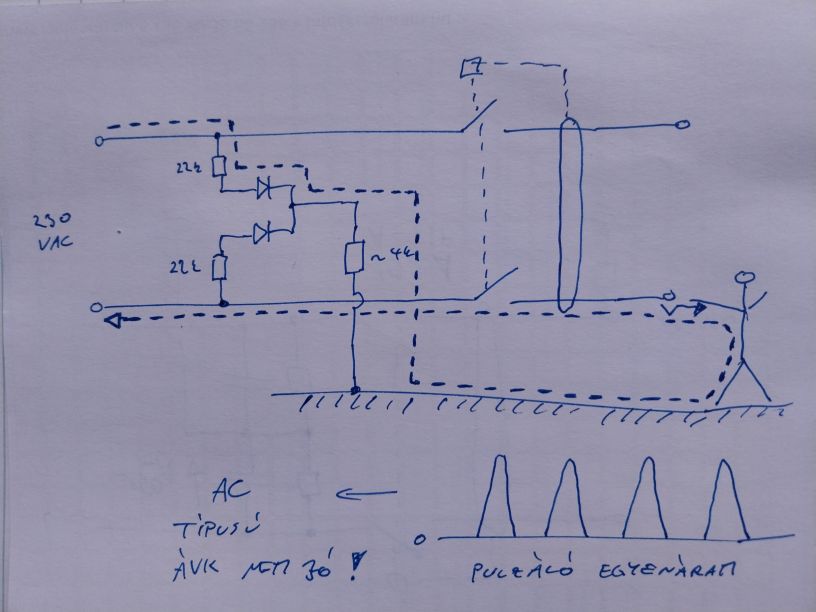 22k
230
VAC
22k
~4k
AC
TÍPUSÚ
ÁVK NEM JÓ!
0
PULZÁLÓ EGYENÁRAM